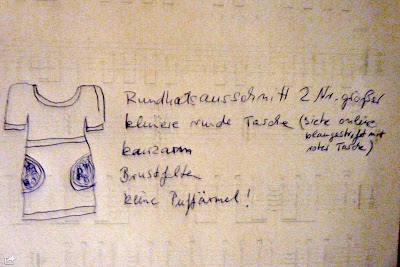 Rundhalsausschnitt 2 Nr. größer
kleinere runde Tasche (siehe online
blaugestreift mit
roter Tasche)
kurzarm
Brustfalten
keine Puffärmel!